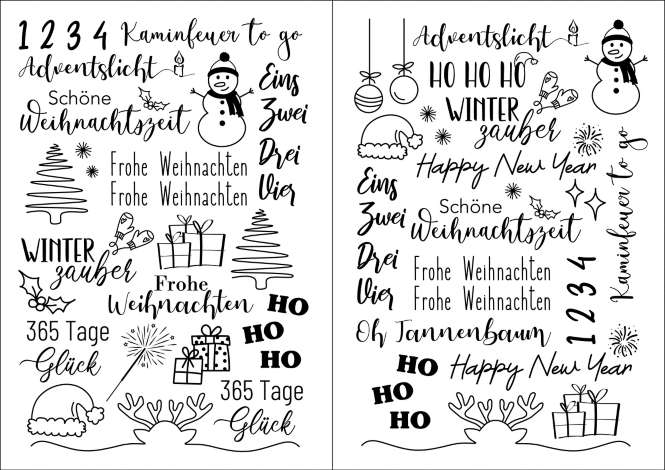 1 2 3 4
Kaminfeuer to go
Adventslicht
Eins
Zwei
Drei
Vier
Schöne
Weihnachtszeit
Frohe Weihnachten
Frohe Weihnachten
WINTER
zauber
Frohe
Weihnachten
HO
HO
HO
365 Tage
Glück
365 Tage
Glück
Adventslicht
HO HO HO
WINTER
zauber
Happy New Year
Eins
Zwei
Drei
Vier
Schöne
Weihnachtszeit
Kaminfeuer to go
1 2 3 4
Frohe Weihnachten
Frohe Weihnachten
Oh Tannenbaum
HO
HO
HO
Happy New Year